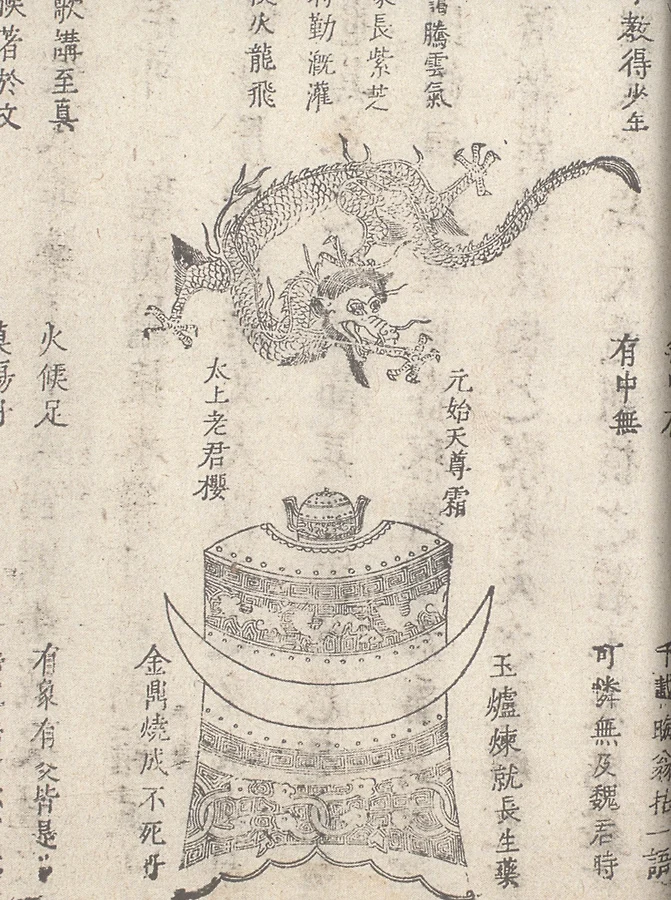 教得少年
騰雲氣
長紫芝
勤漑灌
火龍飛
歌講至真
著於文
有中無
元始天尊霜
太上老君櫻
火候足
千載晦翁拈一語
可憐無及魏君時
玉爐煉就長生藥
金鼎燒成不死丹
有象有爻皆是